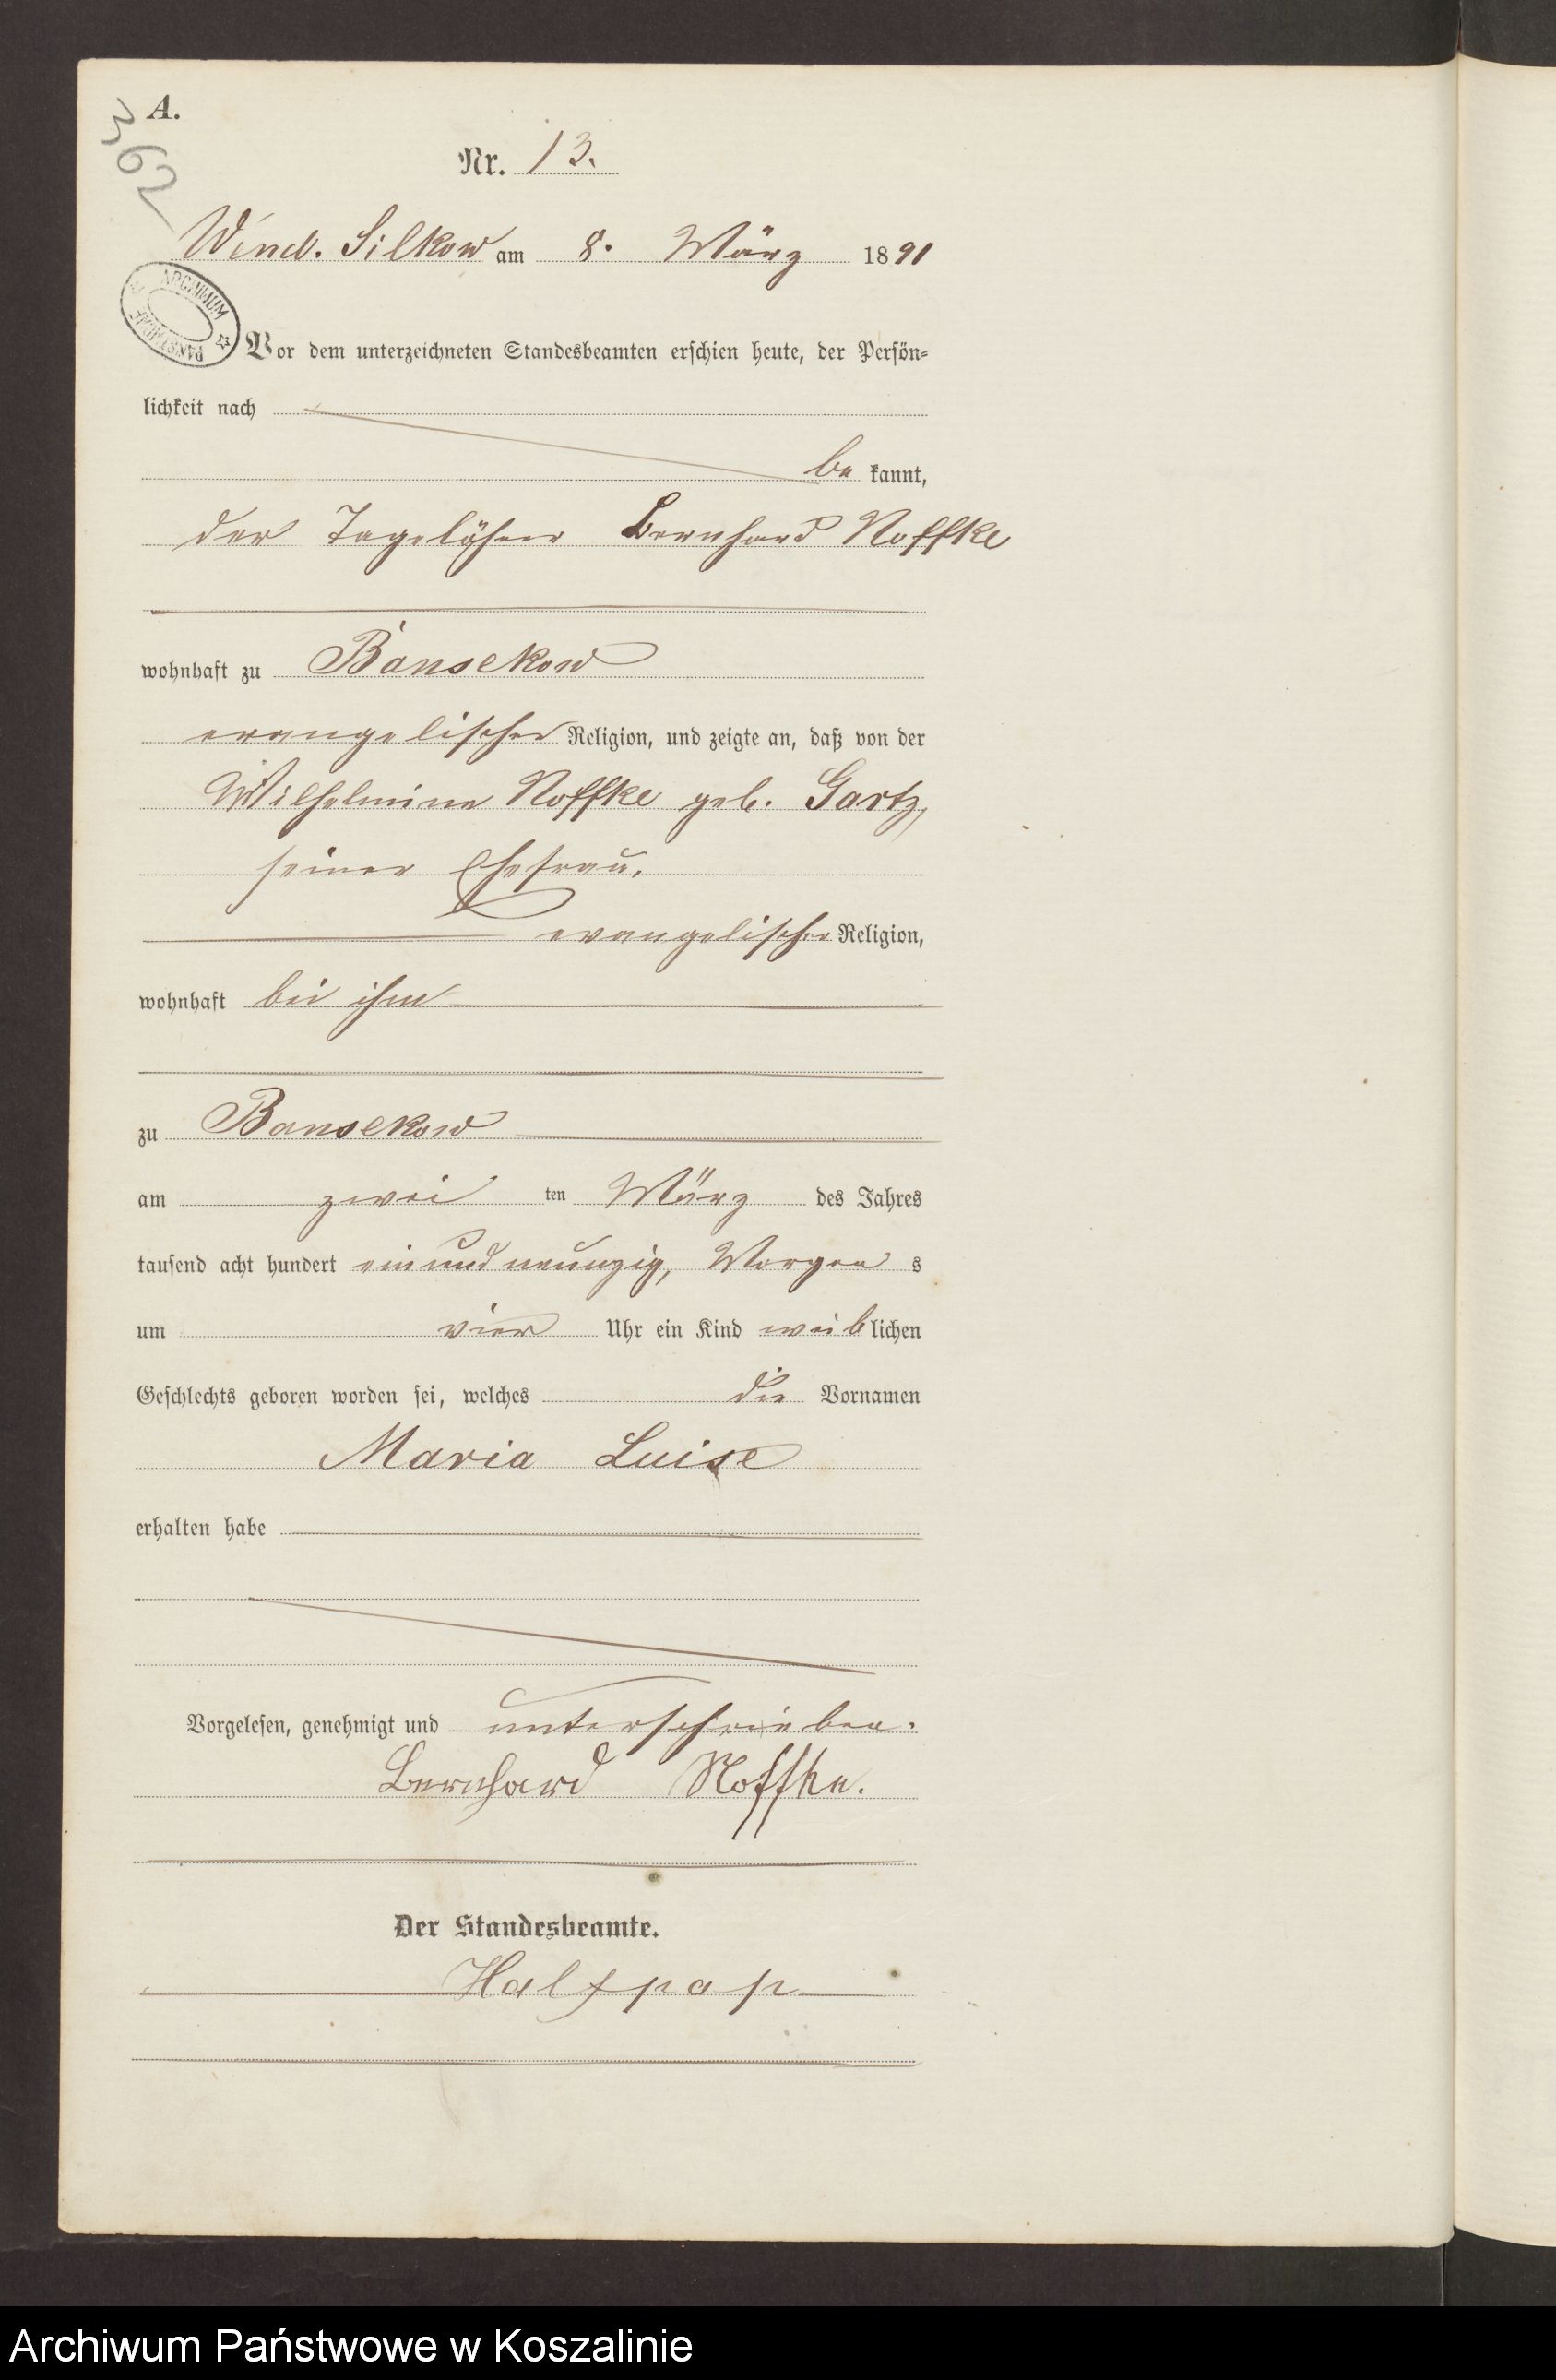 A.
362
Nr. 13.
Wend. Silkow am 8. März 1891
ARCHIWUM PAŃSTWOWE
Vor dem unterzeichneten Standesbeamten erschien heute, der Persön-
lichkeit nach
be kannt,
der Tagelöhner Bernhard Noffke
wohnhaft zu Bansekow
evangelischer Religion, und zeigte an, daß von der
Wilhelmine Noffke geb. Gartz,
seiner Ehefrau.
evangelischer Religion,
wohnhaft bei ihm
zu Bansekow
am zwei ten März des Jahres
tausend acht hundert ein und neunzig, Morgen s
um vier Uhr ein Kind weib lichen
Geschlechts geboren worden sei, welches die Vornamen
Maria Luise
erhalten habe
Vorgelesen, genehmigt und unterschrieben.
Bernhard Noffke.
Der Standesbeamte.
Halfpap
Archiwum Państwowe w Koszalinie